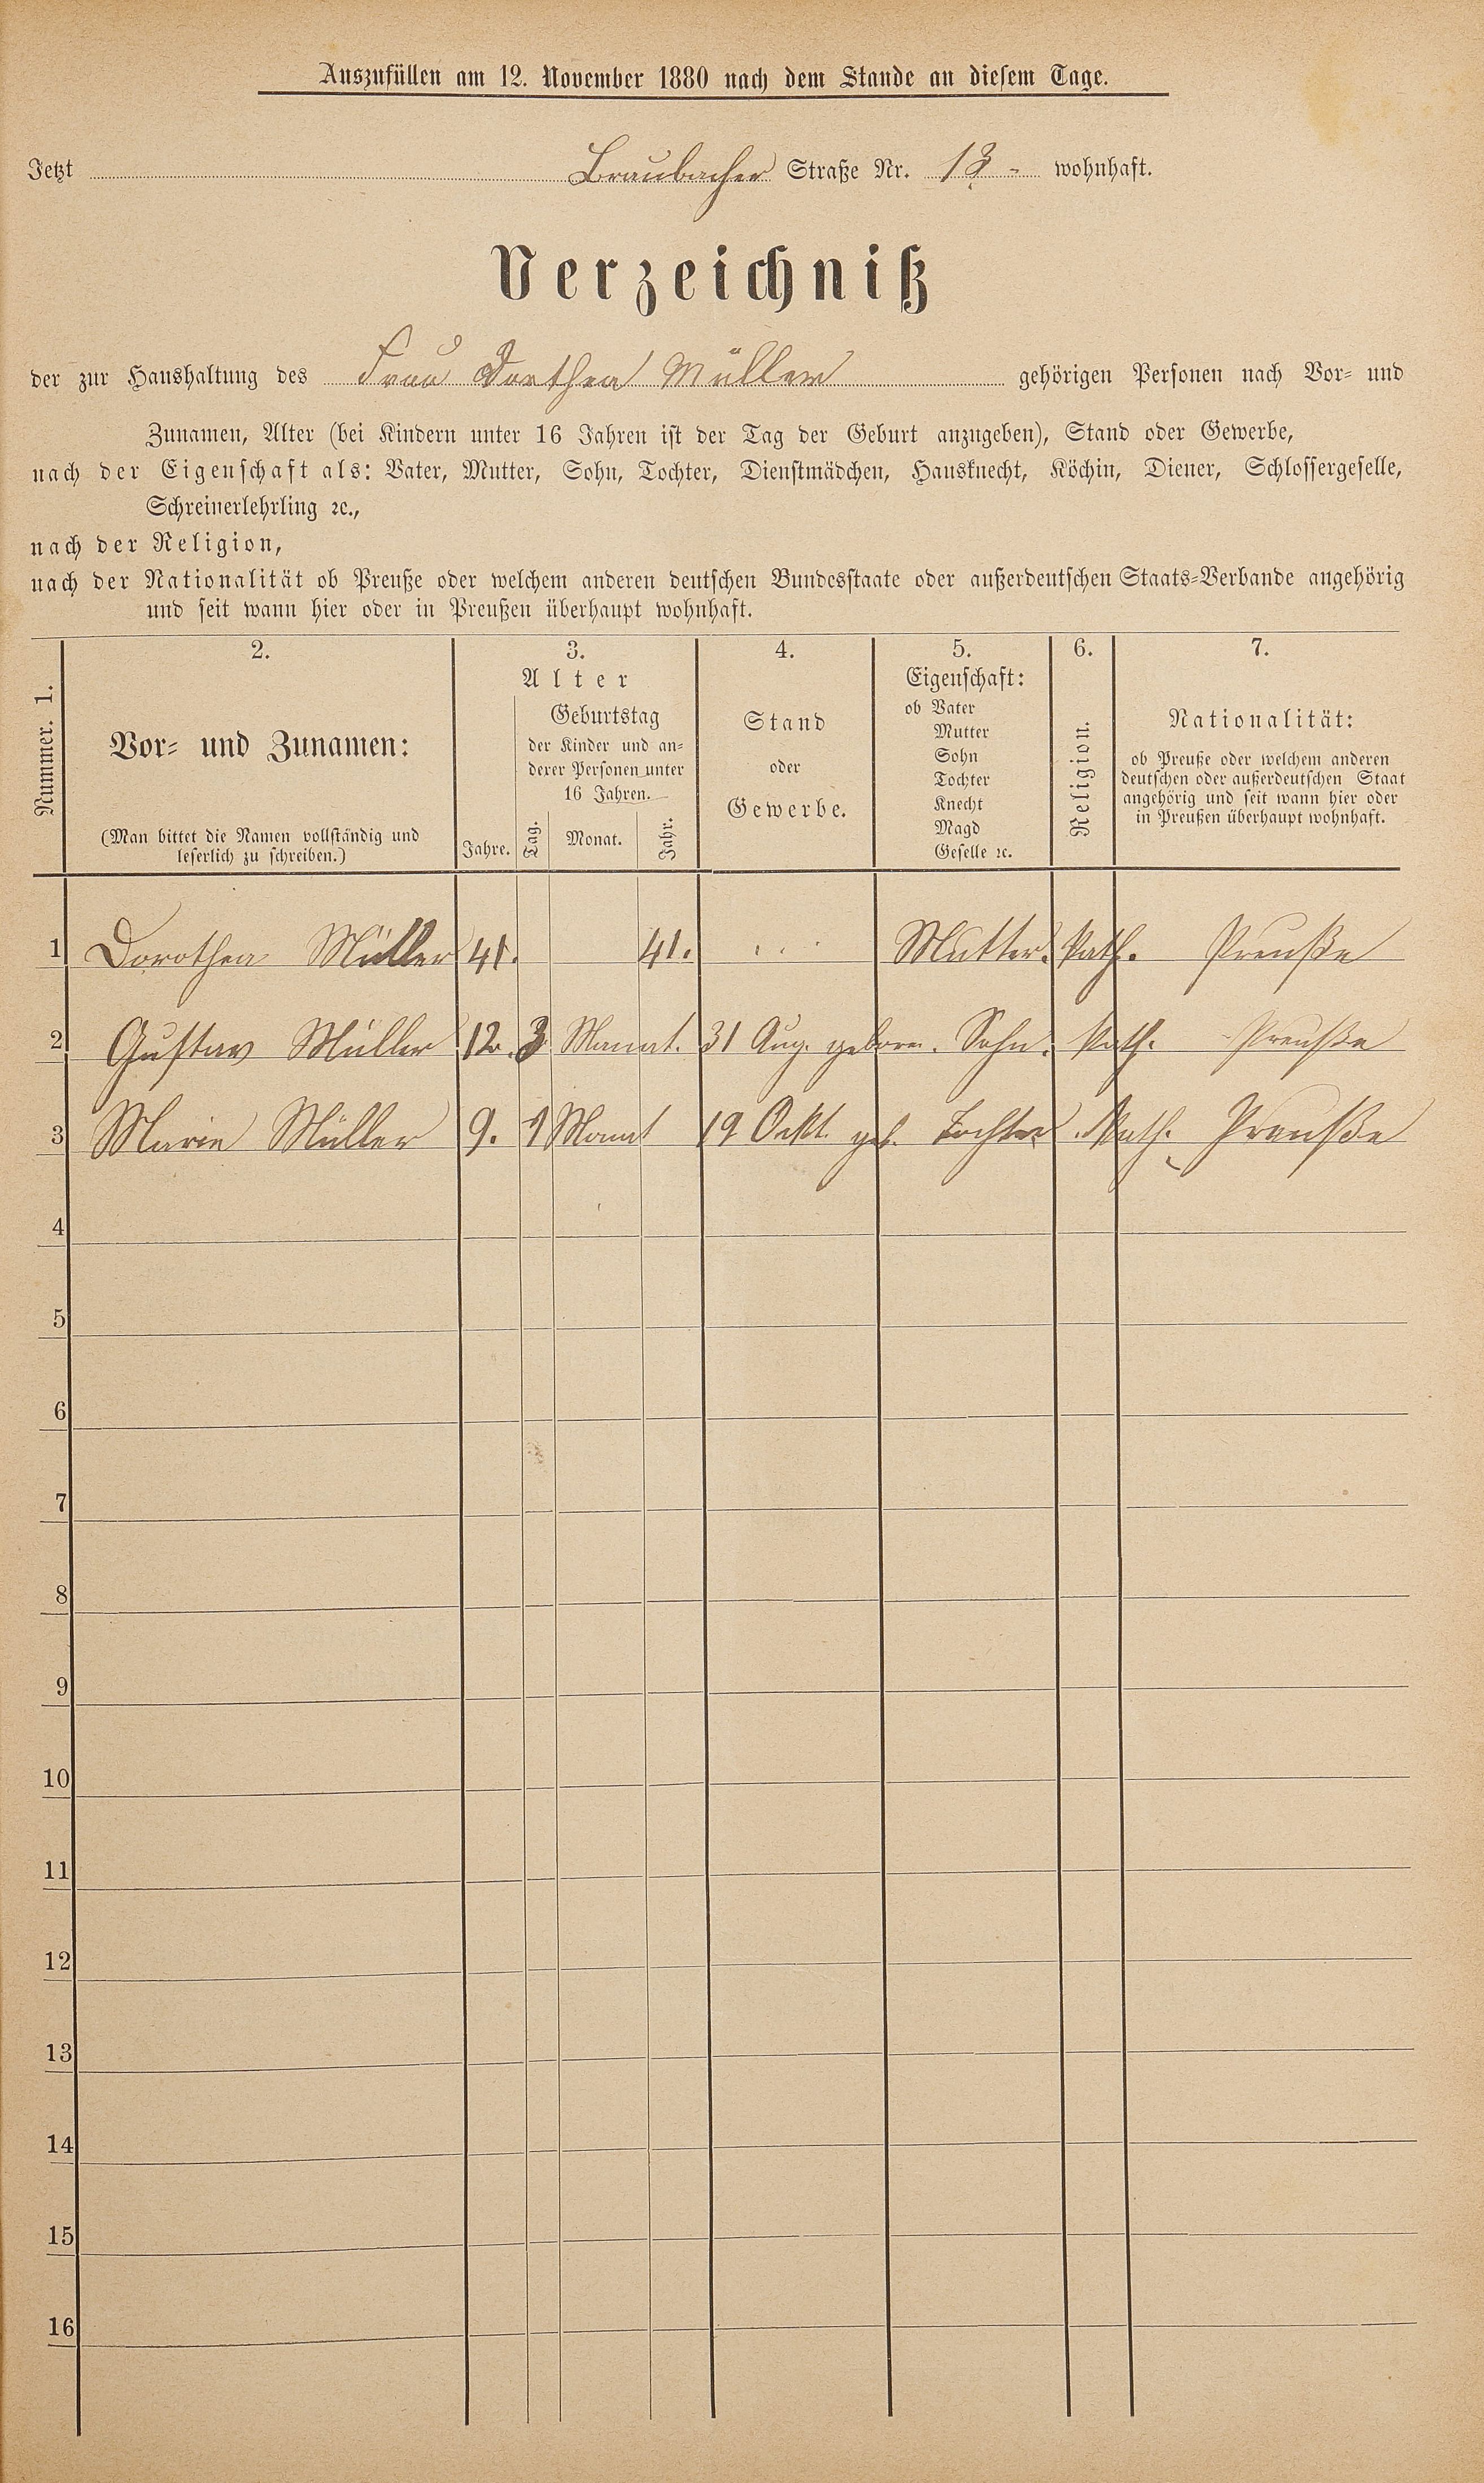 Auszufüllen am 12. November 1880 nach dem Stande an diesem Tage.
Jetzt Braubacher Straße Nr. 13 - wohnhaft.
Verzeichniß
der zur Haushaltung des Frau Dorthea Müller gehörigen Personen nach Vor- und
Zunamen, Alter (bei Kindern unter 16 Jahren ist der Tag der Geburt anzugeben), Stand oder Gewerbe,
nach der Eigenschaft als: Vater, Mutter, Sohn, Tochter, Dienstmädchen, Hausknecht, Köchin, Diener, Schlossergeselle,
Schreinerlehrling ꝛc.,
nach der Religion,
nach der Nationalität ob Preuße oder welchem anderen deutschen Bundesstaate oder außerdeutschen Staats-Verbande angehörig
und seit wann hier oder in Preußen überhaupt wohnhaft.
Nummer. 1.
2.
Vor- und Zunamen:
(Man bittet die Namen vollständig und
leserlich zu schreiben.)
3.
Alter
Geburtstag
der Kinder und an-
derer Personen unter
16 Jahren.
Jahre. Tag. Monat. Jahr.
4.
Stand
oder
Gewerbe.
5.
Eigenschaft:
ob Vater
Mutter
Sohn
Tochter
Knecht
Magd
Geselle ꝛc.
6.
Religion.
7.
Nationalität:
ob Preuße oder welchem anderen
deutschen oder außerdeutschen Staat
angehörig und seit wann hier oder
in Preußen überhaupt wohnhaft.
1 Dorothea Müller 41. 41. Mutter. Kath. Preuße
2 Gustav Müller 12. 3 Monat. 31 Aug. geboren. Sohn. Kath. Preuße
3 Marie Müller 9. 1 Monat 19 Ockt. geb. Tochter. Kath. Preuße
4
5
6
7
8
9
10
11
12
13
14
15
16